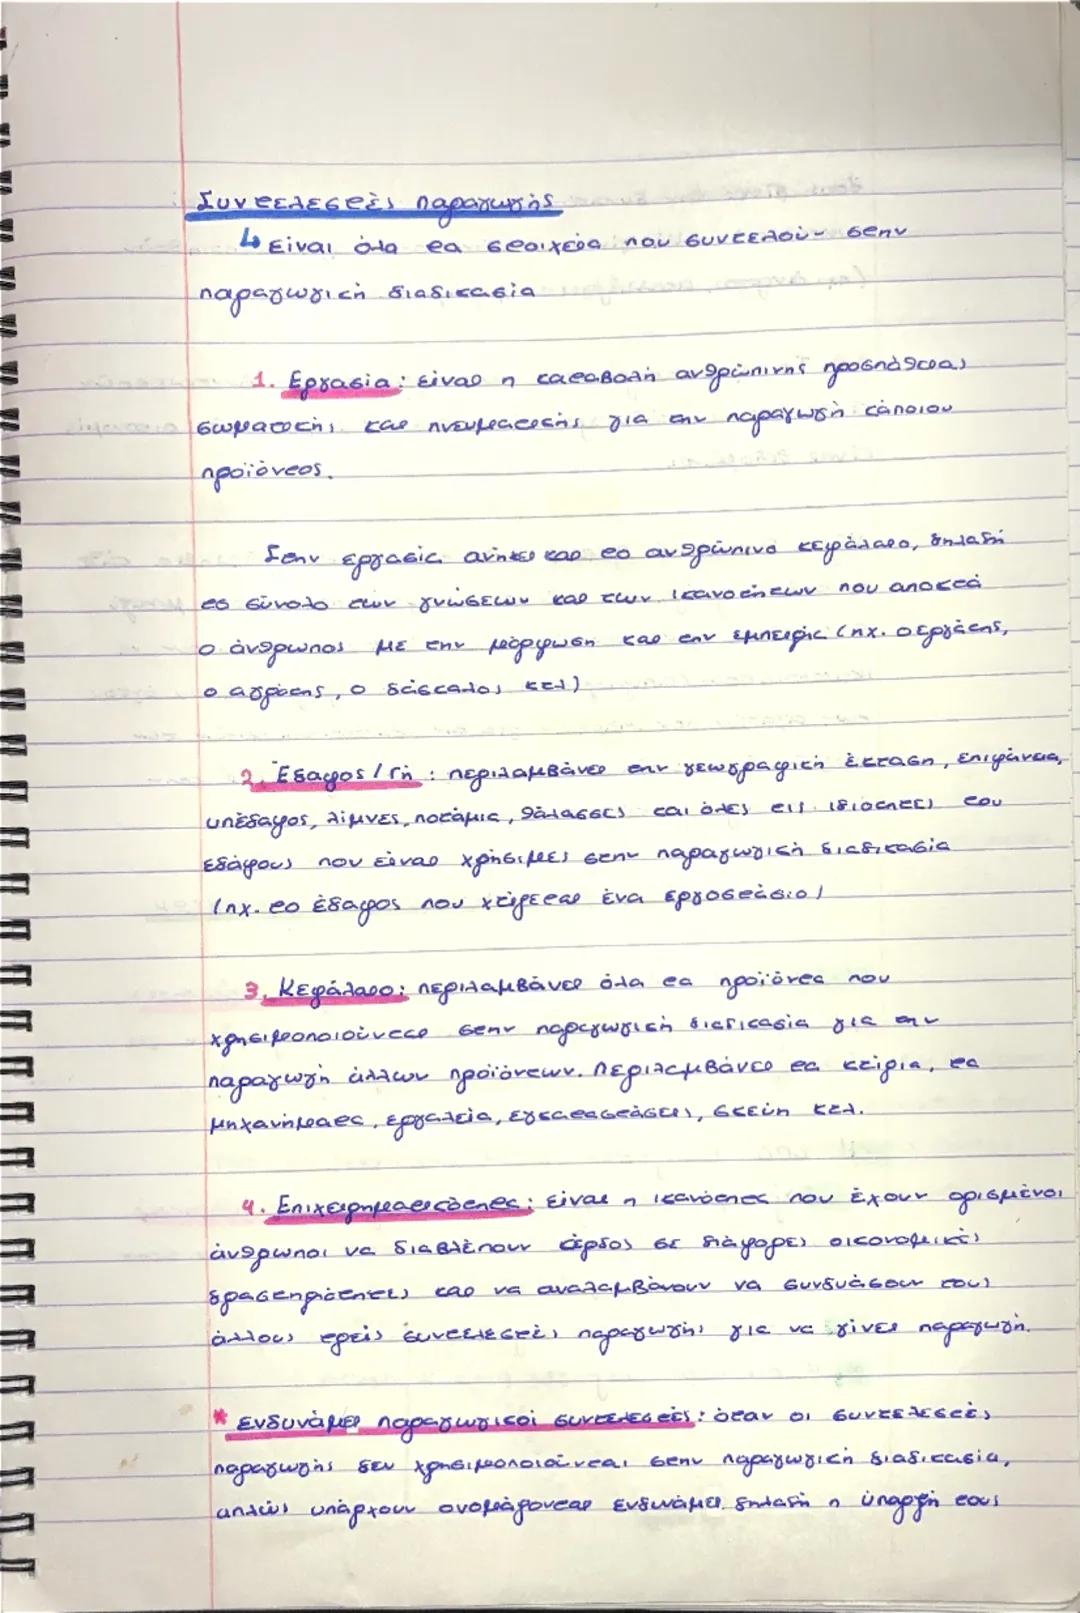 Συντελεστές παραγωγής
↳ Είναι όλα τα στοιχεία που συντελού- στην
παραγωγική διαδικασία
1. Εργασία: είναι η καταβολή ανθρώπινης προσπάθειας
σωματικής και πνευματικής για την παραγωγή κάποιου
προϊόντος.
Στην εργασία ανήκει και το ανθρώπινο κεφάλαιο, δηλαδή
το σύνολο των γνώσεων και των ικανοτήτων που αποκτά
ο άνθρωπος με την μόρφωση και την εμπειρία (πχ. ο εργάτης,
ο αγρότης, ο δάσκαλος κτλ)
2. Έδαφος/Γη: περιλαμβάνει την γεωγραφική έκταση, επιφάνεια,
υπέδαφος, λίμνες, ποτάμια, θάλασσες και όλες τις ιδιότητες του
εδάφους που είναι χρήσιμες στην παραγωγική διαδικασία
(πχ. το έδαφος που χτίζεται ένα εργοστάσιο)
3. Κεφάλαιο: περιλαμβάνει όλα τα προϊόντα που
χρησιμοποιούνται στην παραγωγική διαδικασία για την
παραγωγή άλλων προϊόντων. Περιλαμβάνει τα κτίρια, τα
μηχανήματα, εργαλεία, εγκαταστάσεις, σκεύη κτλ.
4. Επιχειρηματικότητα: είναι η ικανότητα που έχουν ορισμένοι
άνθρωποι να διαβλέπουν κέρδος σε διάφορες οικονομικές
δραστηριότητες και να αναλαμβάνουν να συνδυάσουν τους
άλλους τρεις συντελεστές παραγωγής για να γίνει παραγωγή.
* Ενδυνάμει παραγωγικοί συντελεστές: όταν οι συντελεστές
παραγωγής δεν χρησιμοποιούνται στην παραγωγική διαδικασία,
απλώς υπάρχουν ονομάζονται ενδυνάμει δηλαδή η ύπαρξή τους